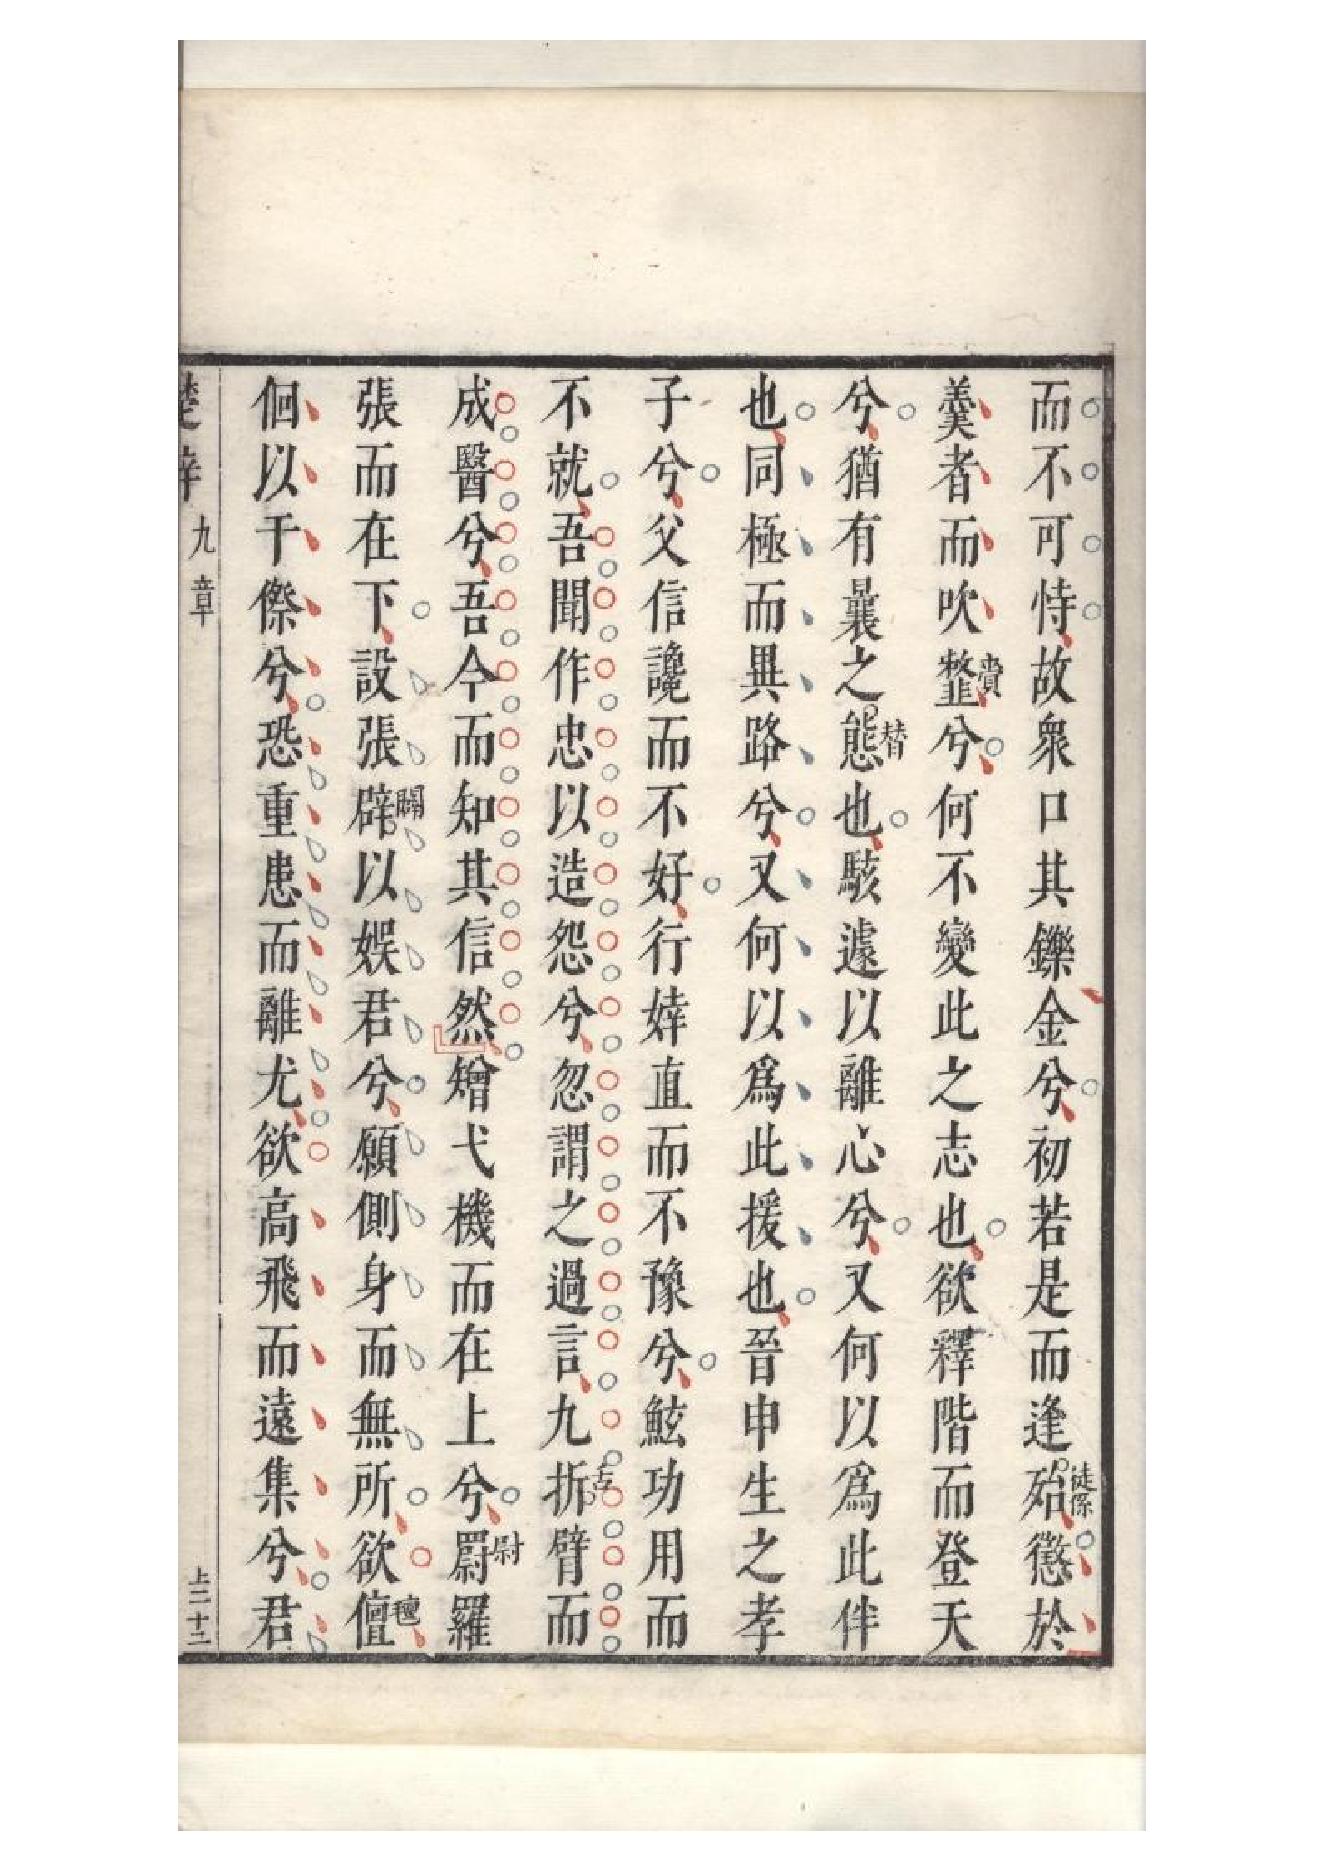 而不可恃故衆口其鑠金兮初若是而逢殆徒係懲於
羹者而吹𩐎賷兮何不變此之志也欲釋階而登天
兮猶有曩之態替也駭遽以離心兮又何以爲此伴
也同極而異路兮又何以爲此援也晉申生之孝
子兮父信讒而不好行婞直而不豫兮鮌功用而
不就吾聞作忠以造怨兮忽謂之過言九折舌臂而
成醫兮吾今而知其信然矰弋機而在上兮罻尉羅
張而在下設張辟闢以娛君兮願側身而無所欲儃
佪以干傺兮恐重患而離尤欲高飛而遠集兮君
楚辭 九章 上二十二